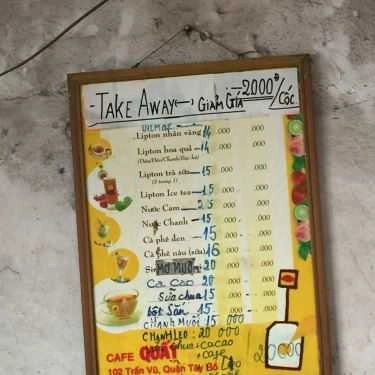 - TAKE AWAY ↔ GIẢM GIÁ - 2000đ/CỐC
VIEMAE
Lipton nhãn vàng 14 .000 .000
Lipton hoa quả - 14 .000 .000
Lipton trà sữa - 15 .000 .000
Lipton Ice tea - 15 .000 - .000
Nước Cam - 25 .000 - .000
Nước Chanh - 15 .000 - .000
Cà phê đen - 15 .000 - .000
Cà phê nâu (sữa) 16 .000 - .000
MƠ MUỐI 20 .000
CA CAO - 20 .000 - .000
Sữa chua 15 .000 - .000
Bột Sắn 15 .000 - .000
CHANH MUỐI 15 000
CHANH LEO : 20 000
chua cacao
CAFE QUẤT 20000
102 Trấn Vũ, Quận Tây Hồ